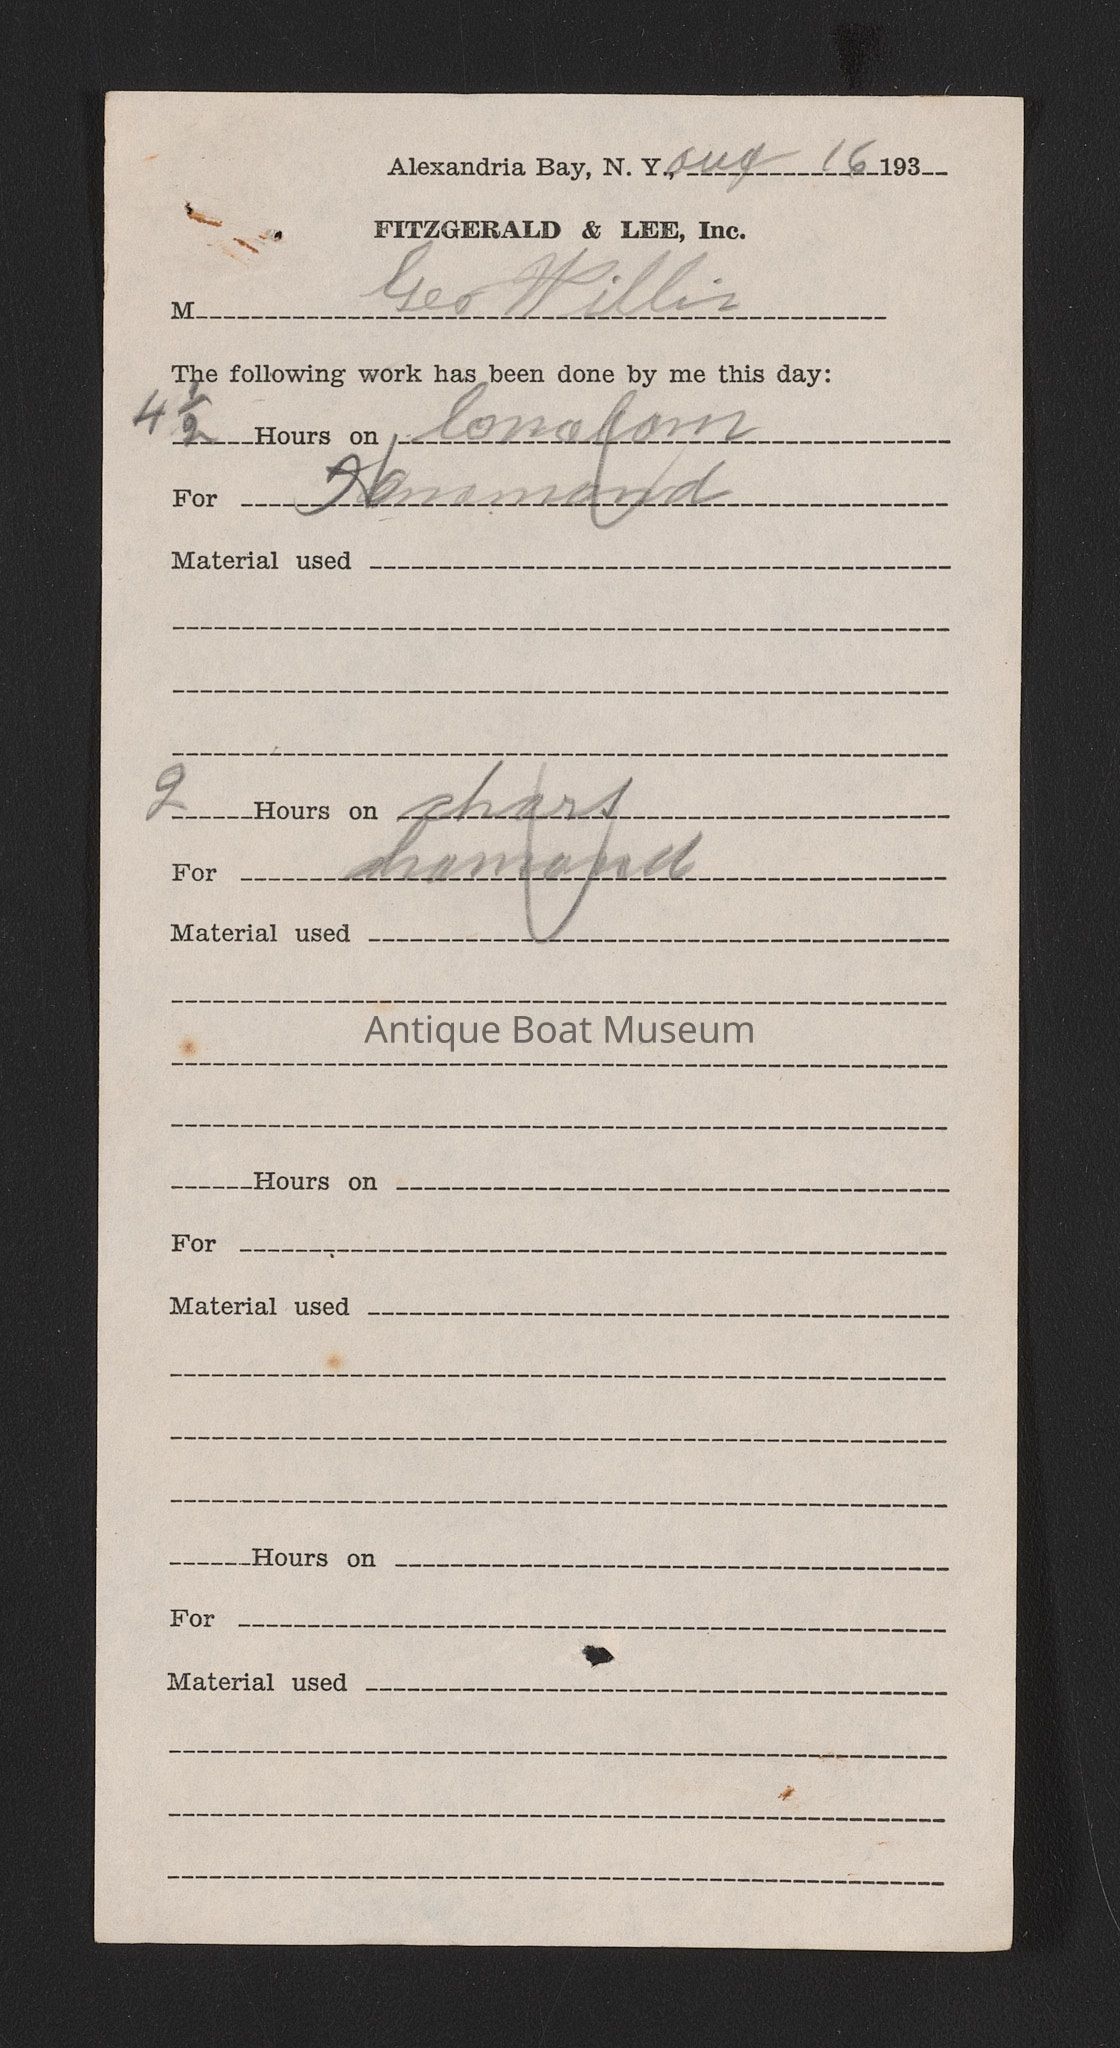 Alexandria Bay, N. Y., aug 16 193
FITZGERALD & LEE, Inc.
M Geo Willis
The following work has been done by me this day:
4 1/2 Hours on
For
Material used
2 Hours on
For
Material used
Antique Boat Museum
Hours on
For
Material used
Hours on
For
Material used